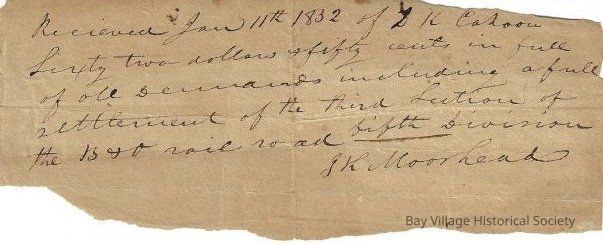 Recieved Jan 11th 1832 of D K Cahoon
Sixty two dollars & fifty cents in full
of all Demands including a full
settlement of the third Section of
the B & O rail road fifth Division
J K Moorhead
Bay Village Historical Society